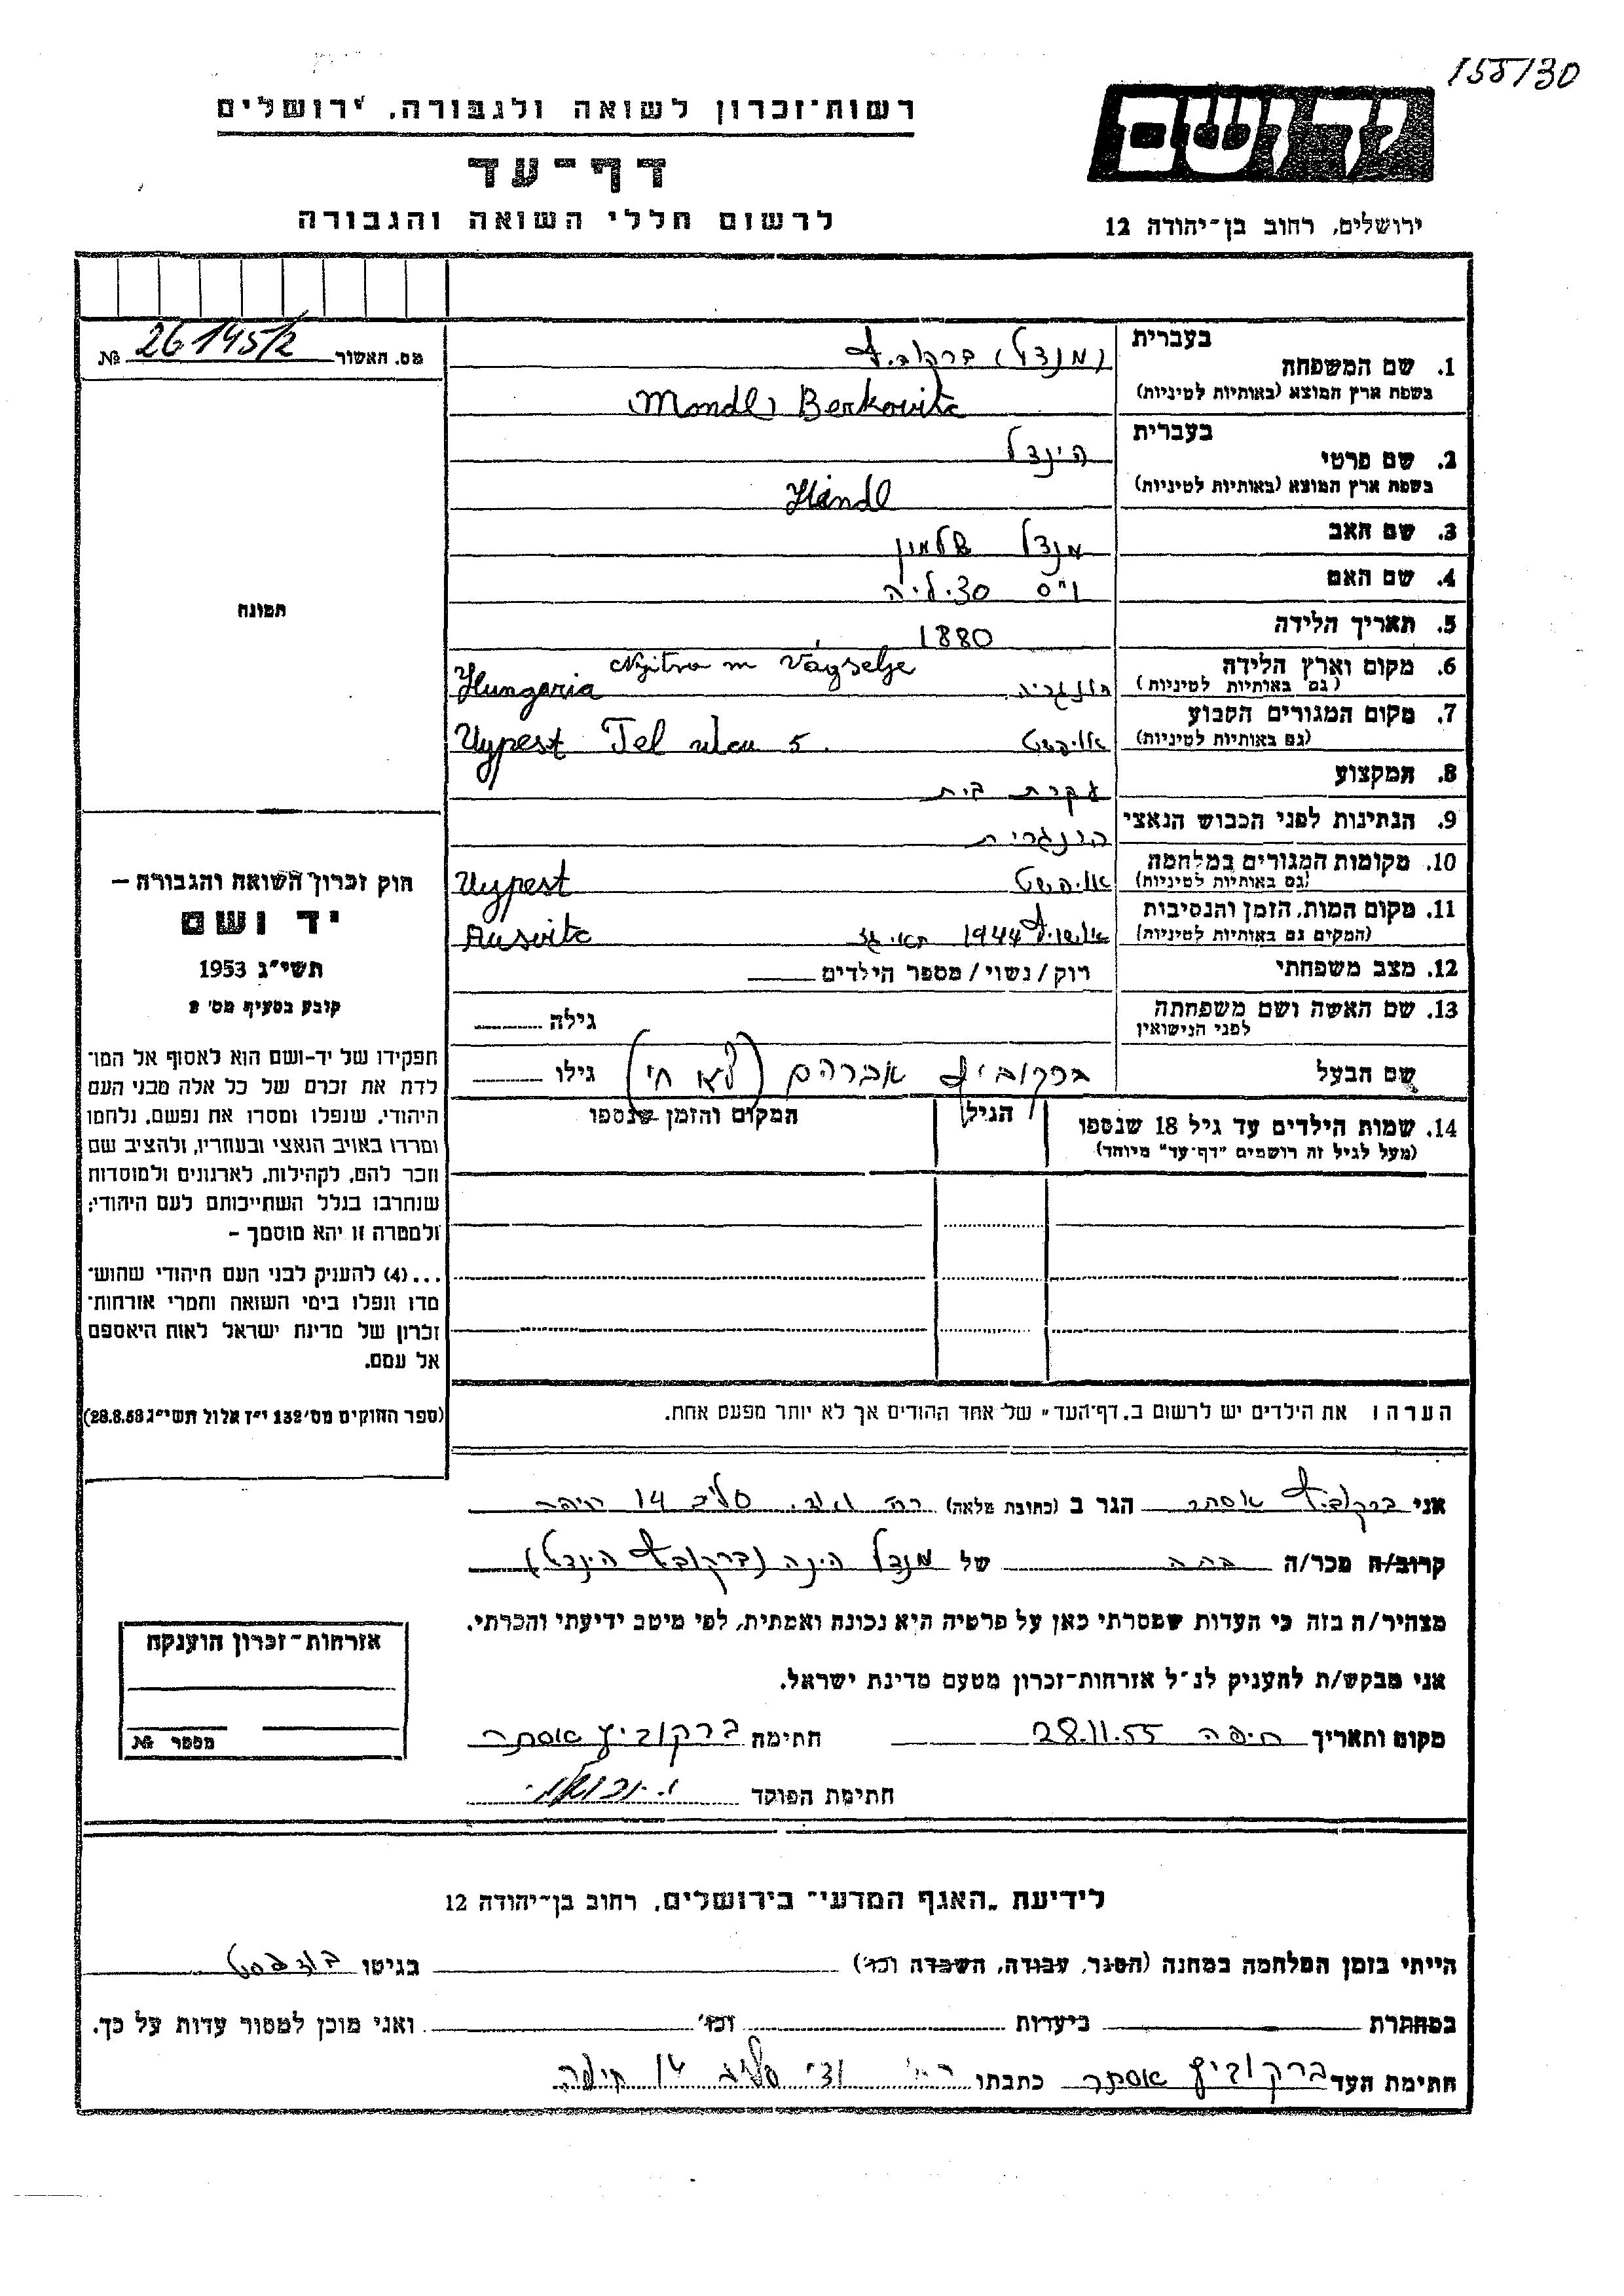 155/30
רשות־זכרון לשואה ולגבורה, ירושלים
יד ושם
דף־עד
לרשום חללי השואה והגבורה
ירושלים, רחוב בן־יהודה 12
מס. האשור № 26145/2
1. שם המשפחה בעברית (מנדל) ברקוביץ
בשפת ארץ המוצא (באותיות לטיניות) Mandl, Berkovits
2. שם פרטי בעברית הינדל
בשפת ארץ המוצא (באותיות לטיניות) Handl
3. שם האב מנדל שלמון
4. שם האם
5. תאריך הלידה 1880
6. מקום וארץ הלידה (גם באותיות לטיניות) הונגריה Nyitra m Vágselje Hungaria
7. מקום המגורים הקבוע (גם באותיות לטיניות) אויפשט Ujpest Tel utca 5.
8. המקצוע עקרת בית
9. הנתינות לפני הכבוש הנאצי הונגרית
10. מקומות המגורים במלחמה (גם באותיות לטיניות) אויפשט Ujpest
11. מקום המות, הזמן והנסיבות (המקום גם באותיות לטיניות) אושויץ 1944 תאי גז Ausvitz
12. מצב משפחתי רוק/נשוי/מספר הילדים
13. שם האשה ושם משפחתה לפני הנישואין גילה
שם הבעל ברקוביץ אברהם (לא חי) גילו
14. שמות הילדים עד גיל 18 שנספו הגיל המקום והזמן שנספו
(מעל לגיל זה רושמים "דף־עד" מיוחד)
הערה: את הילדים יש לרשום ב„דף־העד" של אחד ההורים אך לא יותר מפעם אחת.
תמונה
חוק זכרון השואה והגבורה —
יד ושם
תשי"ג 1953
קובע בסעיף מס' 2
תפקידו של יד-ושם הוא לאסוף אל המו־
לדת את זכרם של כל אלה מבני העם
היהודי, שנפלו ומסרו את נפשם, נלחמו
ומרדו באויב הנאצי ובעוזריו, ולהציב שם
וזכר להם, לקהילות, לארגונים ולמוסדות
שנחרבו בגלל השתייכותם לעם היהודי;
ולמטרה זו יהא מוסמך –
...(4) להעניק לבני העם היהודי שהוש־
מדו ונפלו בימי השואה והמרי אזרחות־
זכרון של מדינת ישראל לאות היאספם
אל עמם.
(ספר החוקים מס' 132 י"ז אלול תשי"ג 28.8.53)
אני ברקוביץ אסתר הגר ב (כתובת מלאה) 14 חיפה
קרוב/ה מכר/ה בתה של מנדל הינה (ברקוביץ הינדל)
מצהיר/ה בזה כי העדות שמסרתי כאן על פרטיה היא נכונה ואמתית, לפי מיטב ידיעתי והכרתי.
אני מבקש/ת להעניק לנ"ל אזרחות־זכרון מטעם מדינת ישראל.
מקום ותאריך חיפה 28.11.55 חתימה ברקוביץ אסתר
חתימת הפוקד
אזרחות־זכרון הוענקה
מספר №
לידיעת „האגף המדעי" בירושלים, רחוב בן־יהודה 12
הייתי בזמן המלחמה במחנה (הסגר, עבודה, השמדה וכו') בגיטו בודפסט
במחתרת ביערות וכו' ואני מוכן למסור עדות על כך.
חתימת העד ברקוביץ אסתר כתבתו 14 חיפה